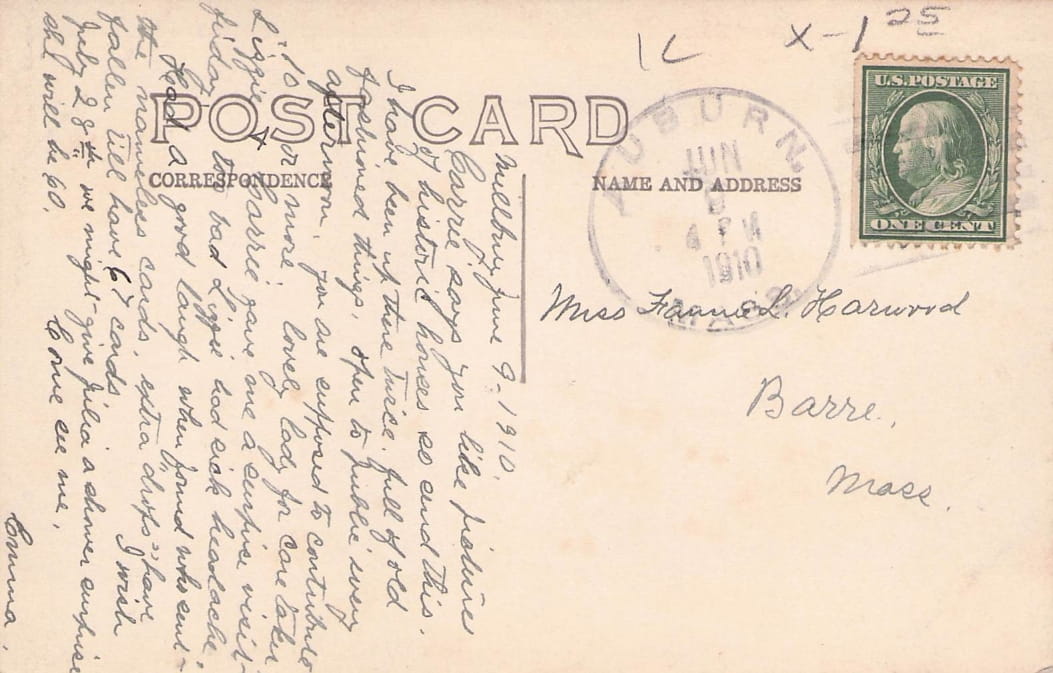 1L X-1 25
U.S. POSTAGE
ONE CENT
POST CARD
AUBURN,
JUN
9
4 PM
1910
MASS.
CORRESPONDENCE
NAME AND ADDRESS
Miss Fannie L. Harwood
Barre,
Mass.
Millbury June 9-1910.
Carrie says you like pictures
of historic houses so send this.
I have been up there twice. full of old
fashioned things, open to public every
afternoon. you are supposed to contribute
10 or more. lovely lady for care taker
Lizzie & Carrie gave me a surprise visit-
friday, to bad Lizzie had sick headache.
Had a good laugh when found who sent-
the nameless cards, extra "drops" have
fallen till have 67 cards. I wish
July 28th we might give Julia a shower surprise
she will be 60.
Come see me.
Emma.